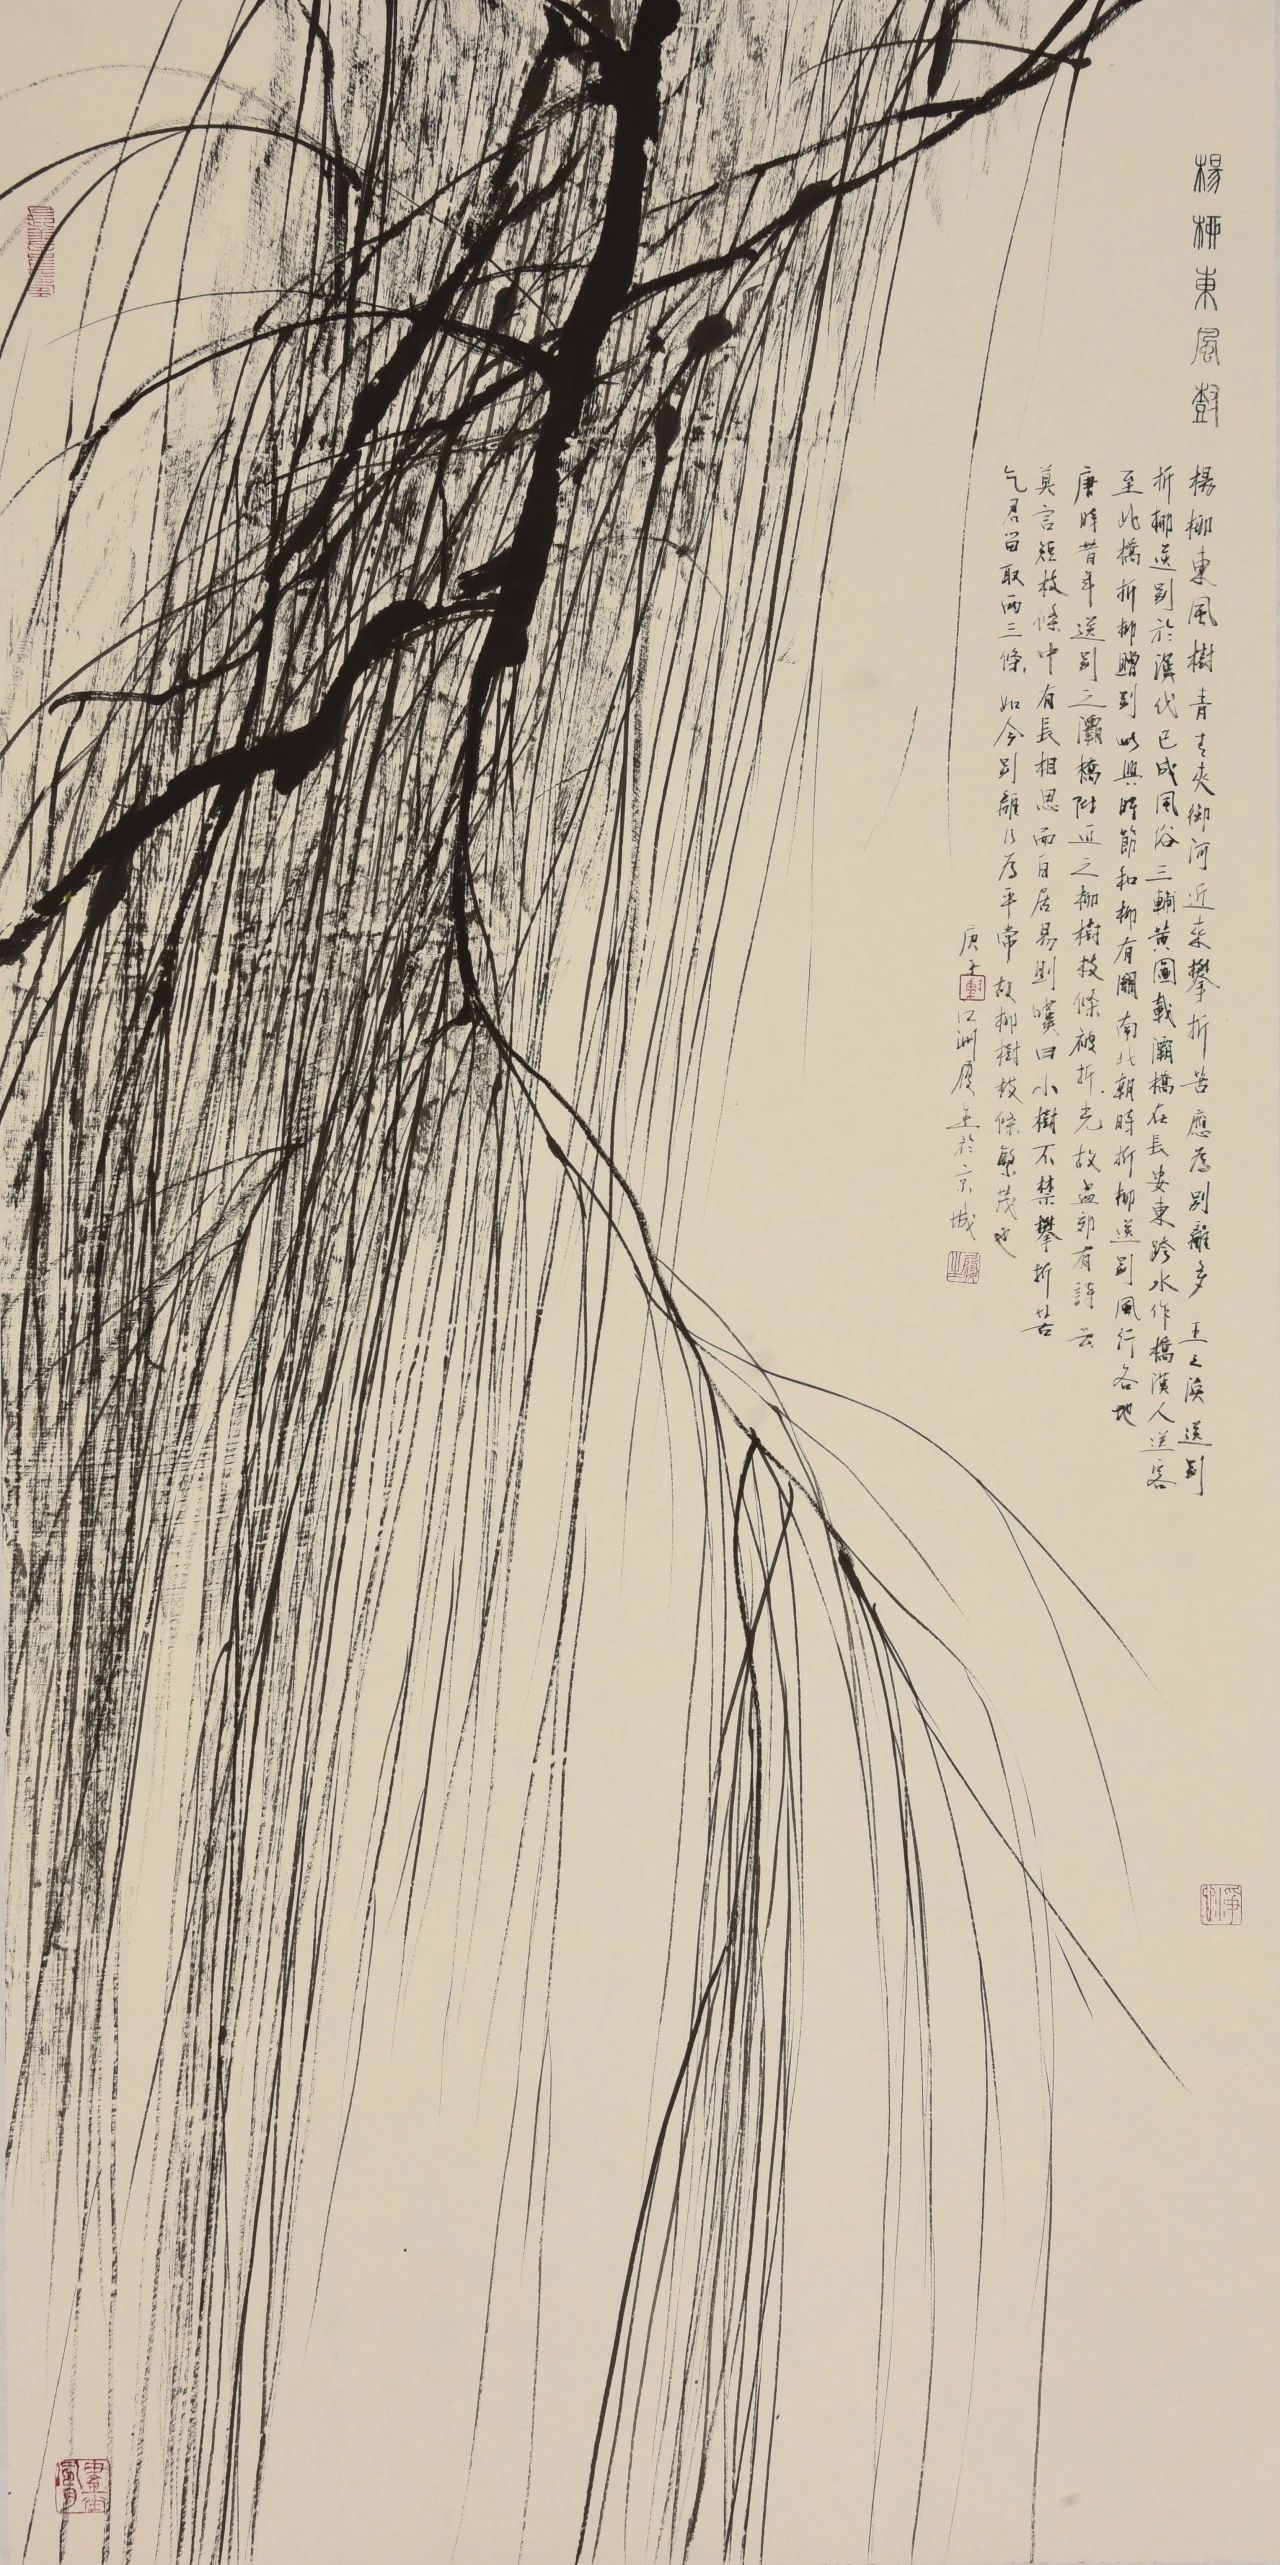 楊桺東風樹
楊柳東風樹青青夾御河近來攀折苦應爲別離多 王之渙送別
折柳送別於漢代已成風俗三輔黃圖載灞橋在長安東跨水作橋漢人送客
至此橋折柳贈別此與時節和柳有關南北朝時折柳送別風行各地
唐時昔年送別之灞橋附近之柳樹枝條被折光故孟郊有詩云
莫言短枝條中有長相思而白居易則嘆曰小樹不禁攀折苦
乞君留取兩三條如今別離乃爲平常故柳樹枝條繁茂也
庚子江洲於京城